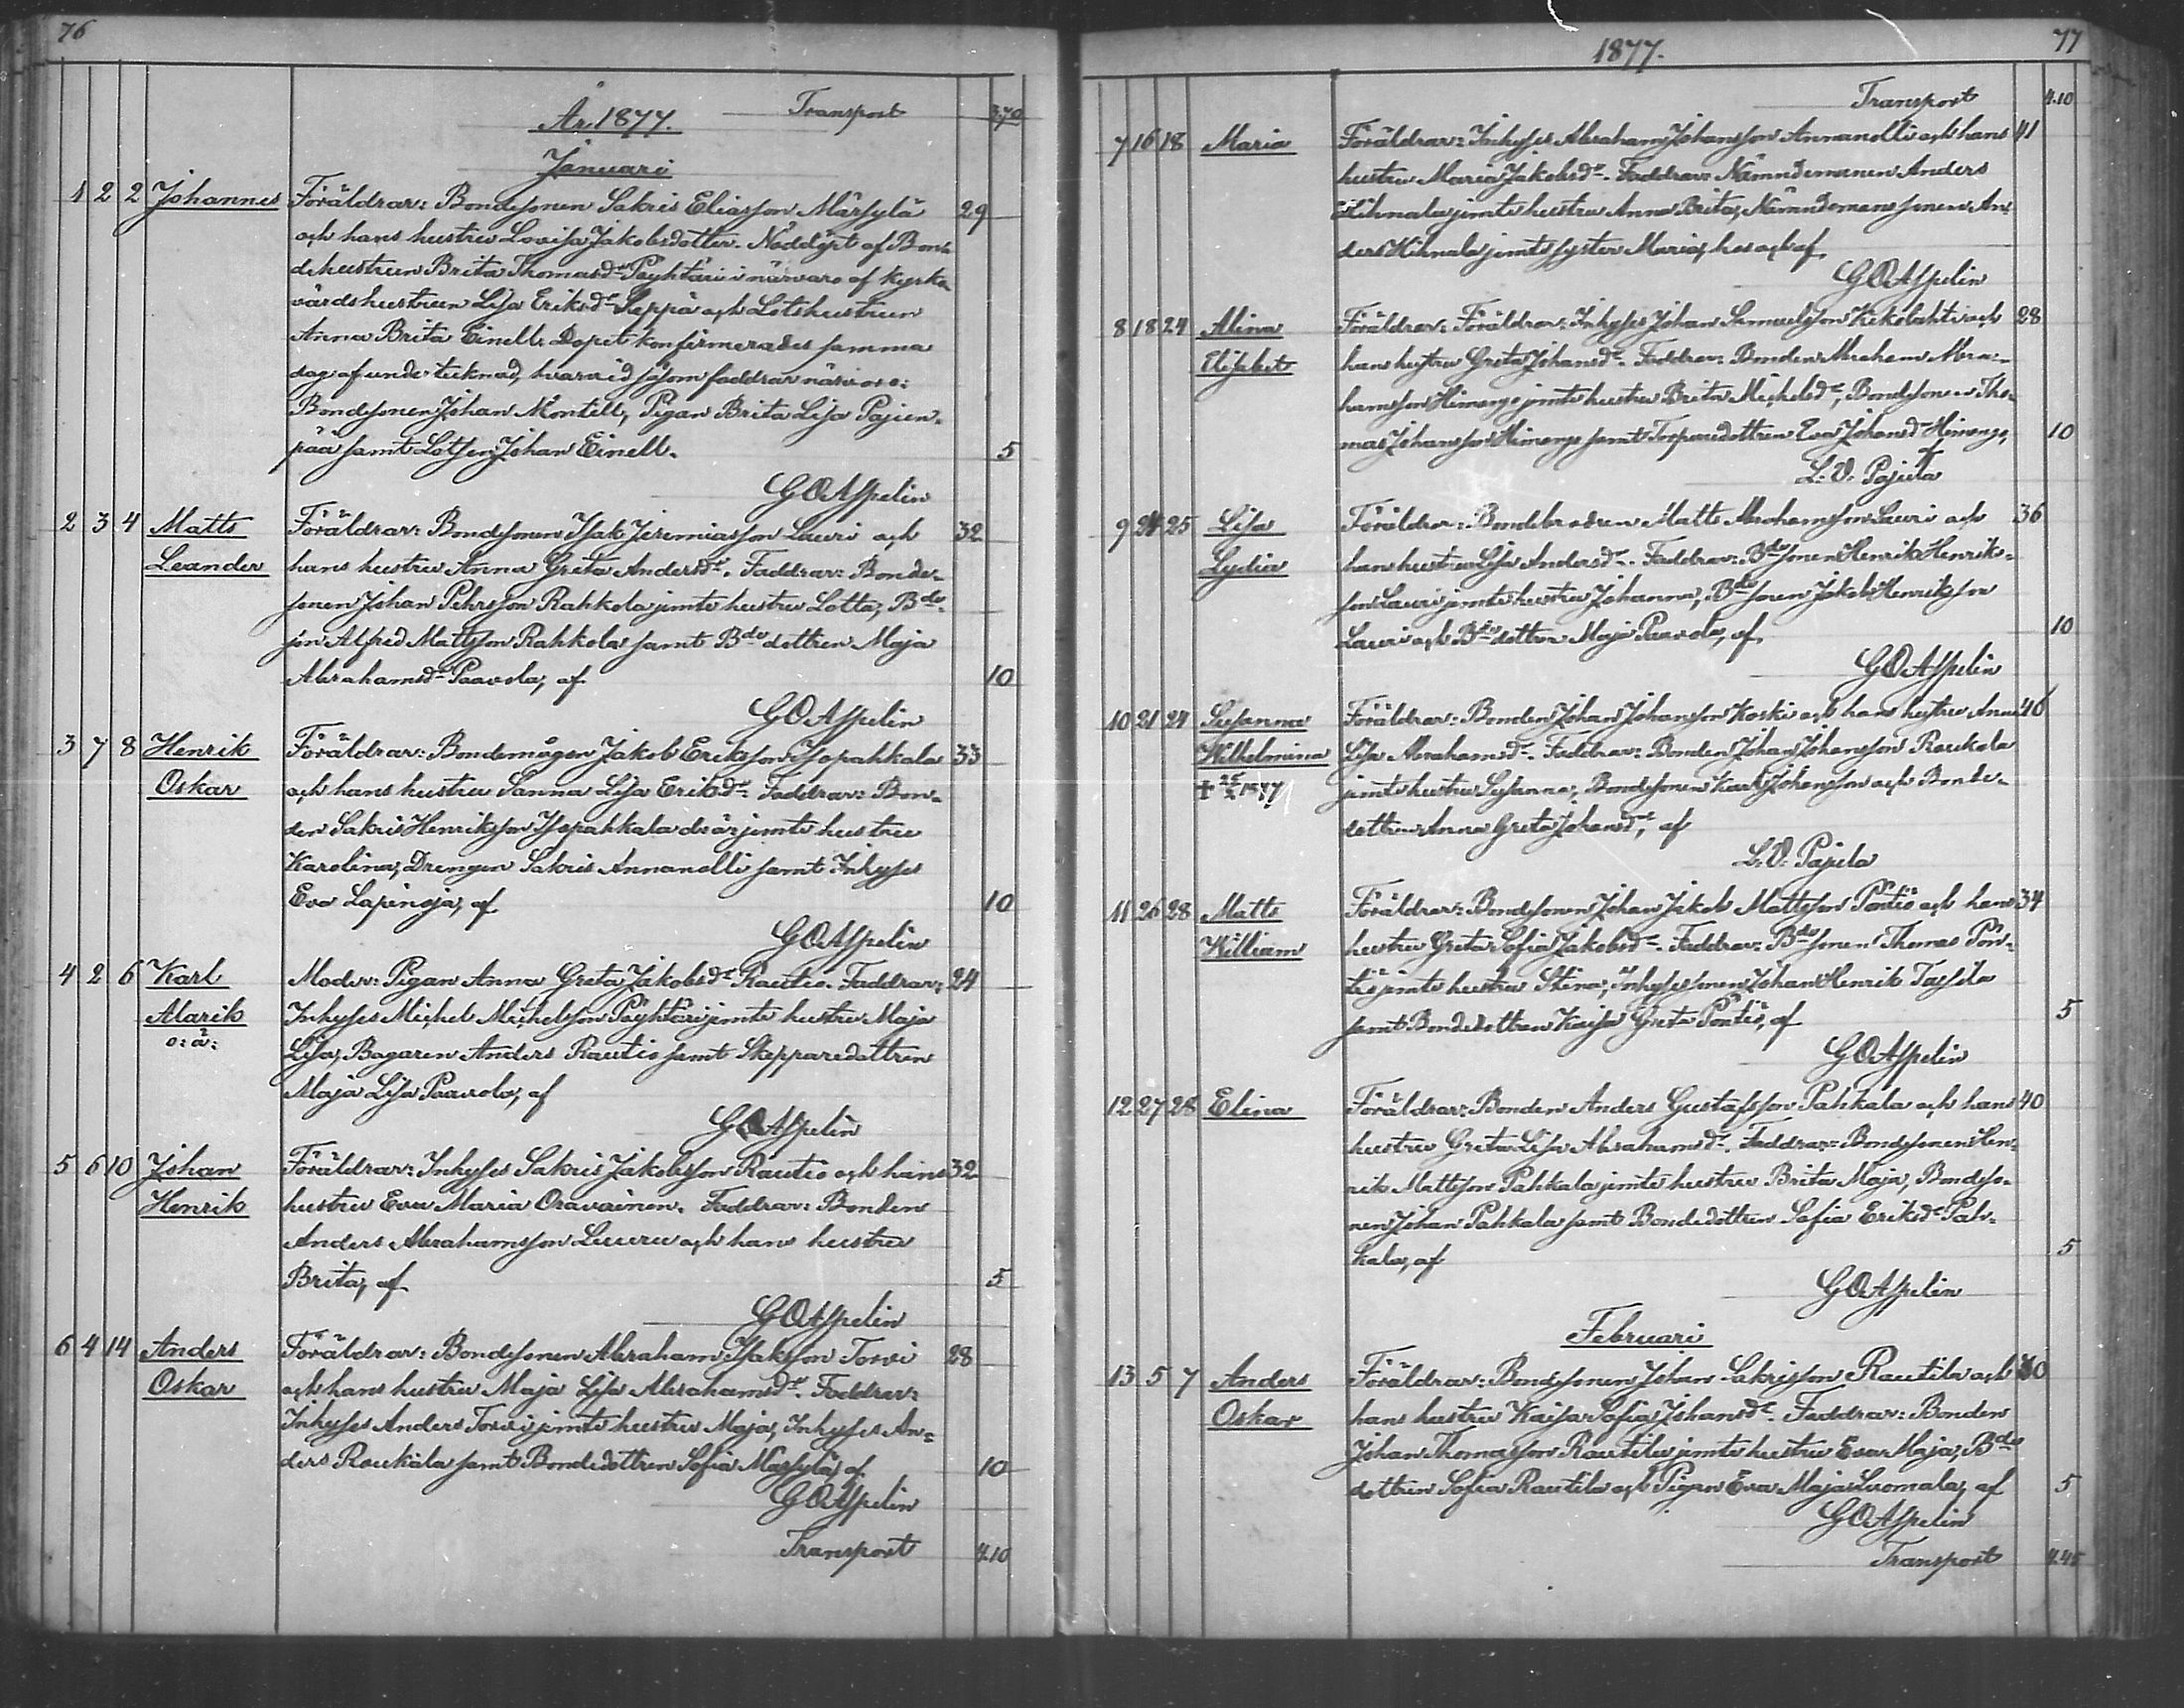 76
År 1877. Transport 3,70
Januari
1 2 2 Johannes Föräldrar: Bondesonen Sakris Eliasson Märsylä 29
och hans hustru Lovisa Jakobsdotter. Nöddöpt af Bon-
dehustrun Brita Thomasdr Pöyhtäri i närvaro af kyrko-
värdshustrun Lisa Eriksdr Seppä och Lotshustrun
Anna Brita Einell. Dopet konfirmerades samma
dag af undertecknad, hvarvid såsom faddrar närvoro:
Bondesonen Johan Montell, Pigan Brita Lisa Pajun-
pää samt Lotsen Johan Einell. 5
GOAspelin
2 3 4 Matts Föräldrar: Bondesonen Isak Jeremiasson Lauri och 32
Leander hans hustru Anna Greta Andersdr. Faddrar: Bonde-
sonen Johan Pehrsson Rahkola jemte hustru Lotta, Bde-
son Alfred Mattsson Rahkola samt Bde dottren Maja
Abrahamsdr Paavola, af 10
GOAspelin
3 7 8 Henrik Föräldrar: Bondemågen Jakob Eriksson Isopahkala 33
Oskar och hans hustru Sanna Lisa Eriksdr. Faddrar: Bon-
den Sakris Henriksson Isopahkala d:ä jemte hustru
Karolina, Drengen Sakris Annanolli samt Inhyses
Eva Lapinoja, af 10
GOAspelin
4 2 6 Karl Moder: Pigan Anna Greta Jakobsdr Rautio. Faddrar: 24
Alarik Inhyses Michel Michelsson Pöyhtäri jemte hustru Maja
o: ä: Lisa, Bagaren Anders Rautio samt Skepparedottren
Maja Lisa Paavola, af
GOAspelin
5 6 10 Johan Föräldrar: Inhyses Sakris Jakobsson Rautio och hans 32
Henrik hustru Eva Maria Oravainen. Faddrar: Bonden
Anders Abrahamsson Luuru och hans hustru
Brita, af 5
GOAspelin
6 4 14 Anders Föräldrar: Bondesonen Abraham Isaksson Torvi 28
Oskar och hans hustru Maja Lisa Abrahamsdr. Faddrar:
Inhyses Anders Torvi jemte hustru Maja, Inhyses An-
ders Roukala samt Bondedottren Sofia Märsylä, af 10
GOAspelin
Transport 4.10
1877. 77
Transport 4.10
7 16 18 Maria Föräldrar: Inhyses Abraham Johansson Annanolli och hans 41
hustru Maria Jakobsdr. Faddrar: Nämndemannen Anders
Hihnala jemte hustru Anna Brita, Nämndemanssonen An-
ders Hihnala jemte syster Maria, hos och af
GOAspelin
8 18 24 Alina Föräldrar: Föräldrar: Inhyses Johan Samuelsson Kekolahti och 28
Elisabet hans hustru Greta Johansdr. Faddrar: Bonden Abraham Abra-
hamsson Himango jemte hustru Brita Michelsdr, Bondesonen Tho-
mas Johansson Himango samt Torparedottren Eva Johansdr Himango, 10
af L. V. Pajula
9 24 25 Lisa Föräldrar: Bondebrodren Matts Abrahamsson Lauri och 36
Lydia hans hustru Lisa Andersdr. Faddrar: Bdesonen Henrik Henriks-
son Lauri jemte hustru Johanna, Bdesonen Jakob Henriksson
Lauri och Bdedottren Maja Paavola, af 10
GOAspelin
10 21 24 Susanna Föräldrar: Bonden Johan Johansson Koski och hans hustru Anna 40
Wilhelmina Lisa Abrahamsdr. Faddrar: Bonden Johan Johansson Roukala
1877 jemte hustru Susanna, Bondesonen Karl Johansson och Bonde-
dottren Anna Greta Johansdr, af
L. V. Pajula
11 26 28 Matts Föräldrar: Bondesonen Johan Jakob Mattsson Pöntiö och hans 34
William hustru Greta Sofia Jakobsdr. Faddrar: Bdesonen Thomas Pön-
tiö jemte hustru Stina, Inhysessonen Johan Henrik Tassila
samt Bondedottren Kajsa Greta Pöntiö, af 5
GOAspelin
12 27 28 Elina Föräldrar: Bonden Anders Gustafsson Pahkala och hans 40
hustru Greta Lisa Abrahamsdr. Faddrar: Bondesonen Hen-
rik Mattsson Pahkala jemte hustru Brita Maja, Bondeso-
nen Johan Pahkala samt Bondedottren Sofia Eriksdr Pah-
kala, af 5
GOAspelin
Februari
13 5 7 Anders Föräldrar: Bondesonen Johan Sakrisson Rautila och 30
Oskar hans hustru Kaisa Sofia Johansdr. Faddrar: Bonden
Johan Thomasson Rautila jemte hustru Eva Maja, Bde
dottren Sofia Rautila och Pigan Eva Maja Luomala, af 5
GOAspelin
Transport 4.45